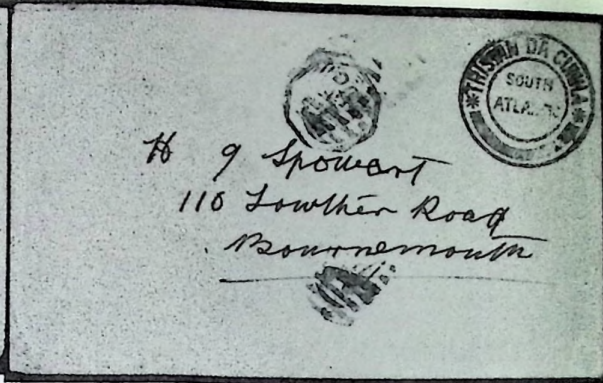 TRISTAN DA CUNHA
SOUTH
ATLANTIC
H G Spowart
110 Lowther Road
Bournemouth